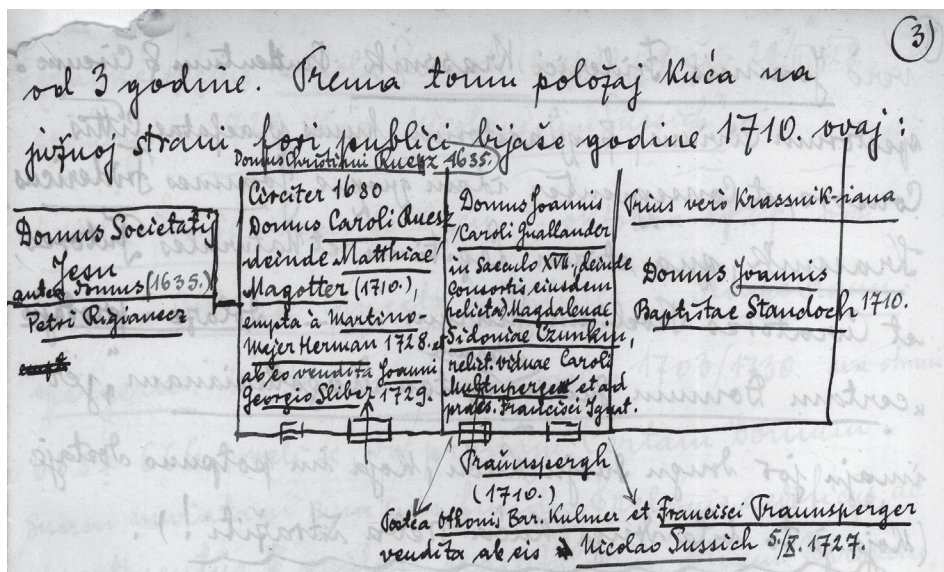 3)
od 3 godine. Prema tomu položaj kuća na
južnoj strani fori publici bijaše godine 1710. ovaj:
Domus Societati
Jesu
antea domus (1635.)
Petri Rigiansez
Domus Christiani Ruesz 1635.
Circiter 1680
Domus Caroli Ruesz
deinde Matthiae
Magotter (1710.),
empta à Martino
Majer Herman 1728. et
ab eo vendita Joanni
Georgio Sliber 1729.
Domus Joannis
Caroli Guallander
in Saeculo XVII. deinde
consortis eiusdem
relictae Magdalenae
Sidoniae Czunkin,
relict. viduae Caroli
et ad
praes. Francisci Ignat.
Prius verò Krassnik-iana
Domus Joannis
Baptistae Standoch 1710.
Praunspergh
(1710.)
Postea Othonis Bar. Kulmer et Francisci Praunsperger
vendita ab eis Nicolao Sussich 5./X. 1727.